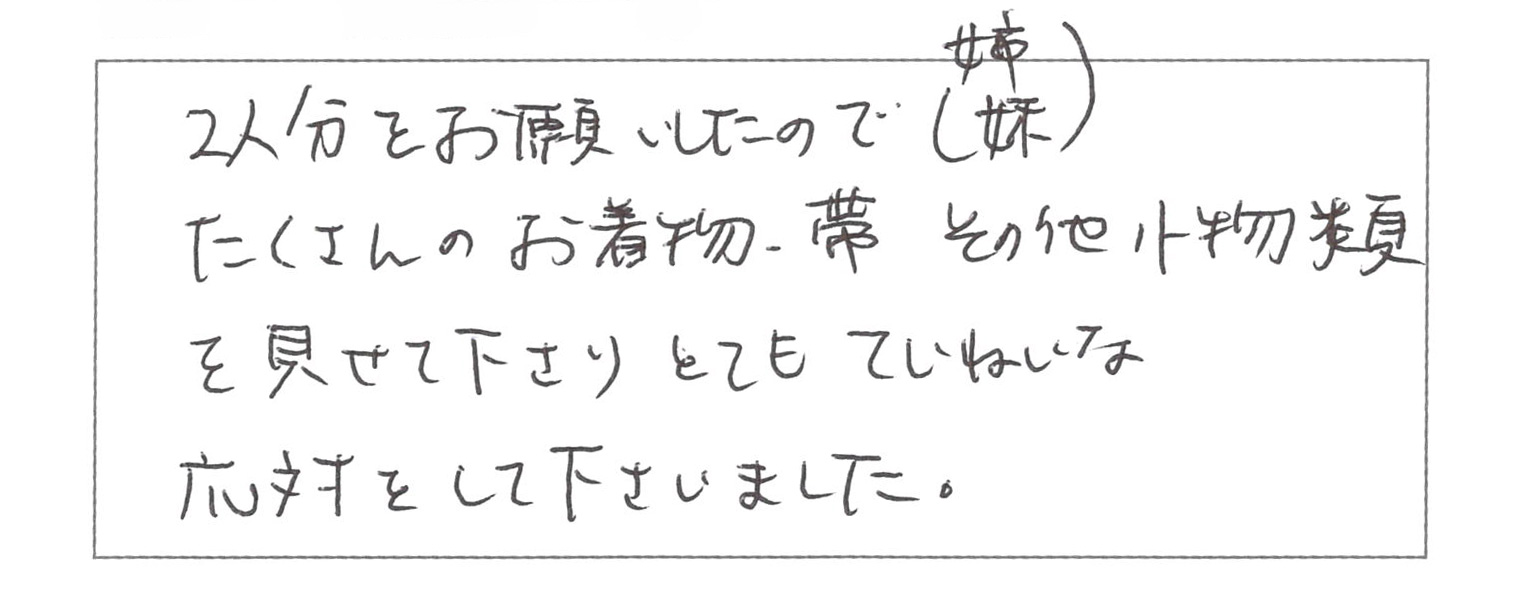 2人分をお願いしたので(姉妹)
たくさんのお着物、帯 その他小物類
を見せて下さり とても ていねいな
応対をして下さいました。